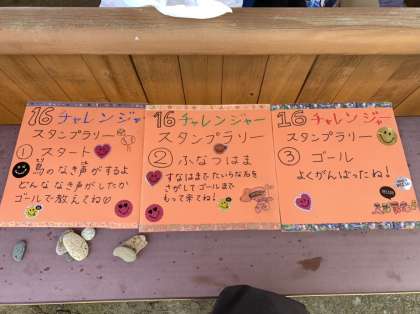 16 チャレンジャー
スタンプラリー
① スタート
鳥のなき声がするよ
どんななき声がしたか
ゴールで教えてね♡
16 チャレンジャー
スタンプラリー
② ふなつはま
すなはまでたいらな石を
さがしてゴールまで
もって来てね!
16 チャレンジャー
スタンプラリー
③ ゴール
よくがんばったね!